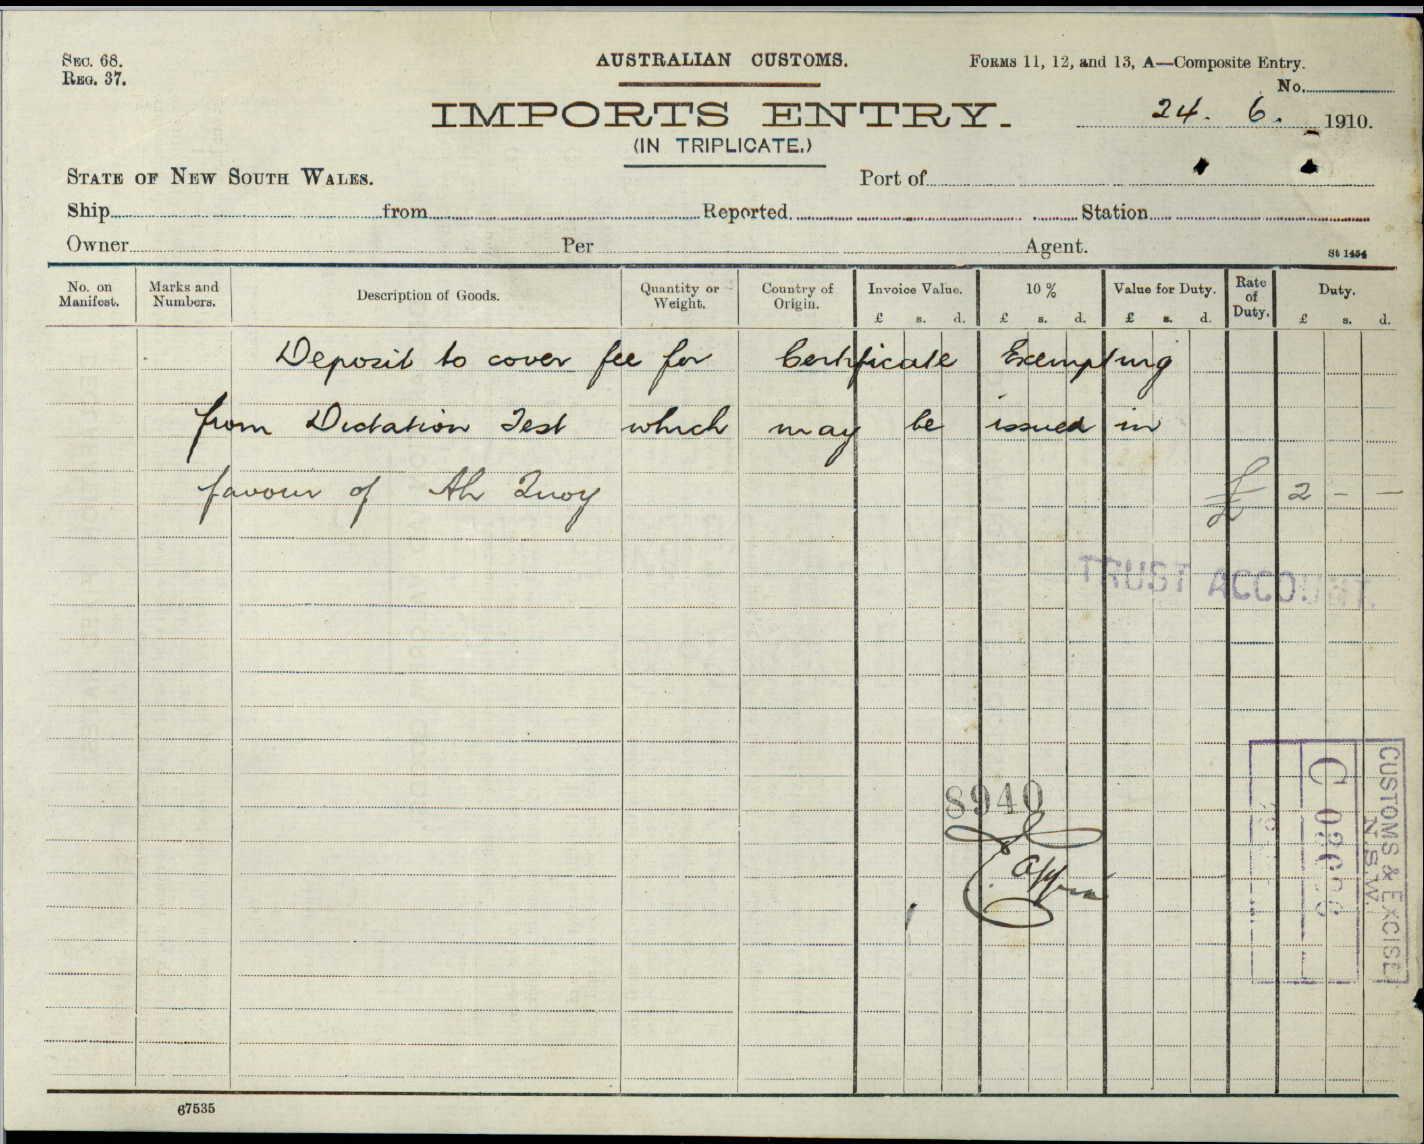 SEC. 68.
REG. 37.
AUSTRALIAN CUSTOMS.
FORMS 11, 12, and 13, A—Composite Entry.
No.
IMPORTS ENTRY.
24. 6. 1910.
(IN TRIPLICATE.)
STATE OF NEW SOUTH WALES.
Port of
Ship from Reported Station
Owner Per Agent.
St 1454
No. on Manifest. Marks and Numbers. Description of Goods. Quantity or Weight. Country of Origin. Invoice Value. 10 % Value for Duty. Rate of Duty. Duty.
£ s. d. £ s. d. £ s. d. £ s. d.
Deposit to cover fee for Certificate Exempting
from Dictation Test which may be issued in
favour of Ah Quoy £ 2 - -
TRUST ACCOUNT.
8940
CUSTOMS & EXCISE
N.S.W.
67535